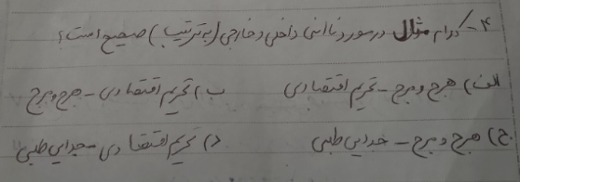 ۴- کدام مثال در مورد ناامنی داخلی و خارجی (به ترتیب) صحیح است؟
الف) هرج و مرج - تحریم اقتصادی ب) تحریم اقتصادی - هرج و مرج
ج) هرج و مرج - جدایی طلبی د) تحریم اقتصادی - جدایی طلبی